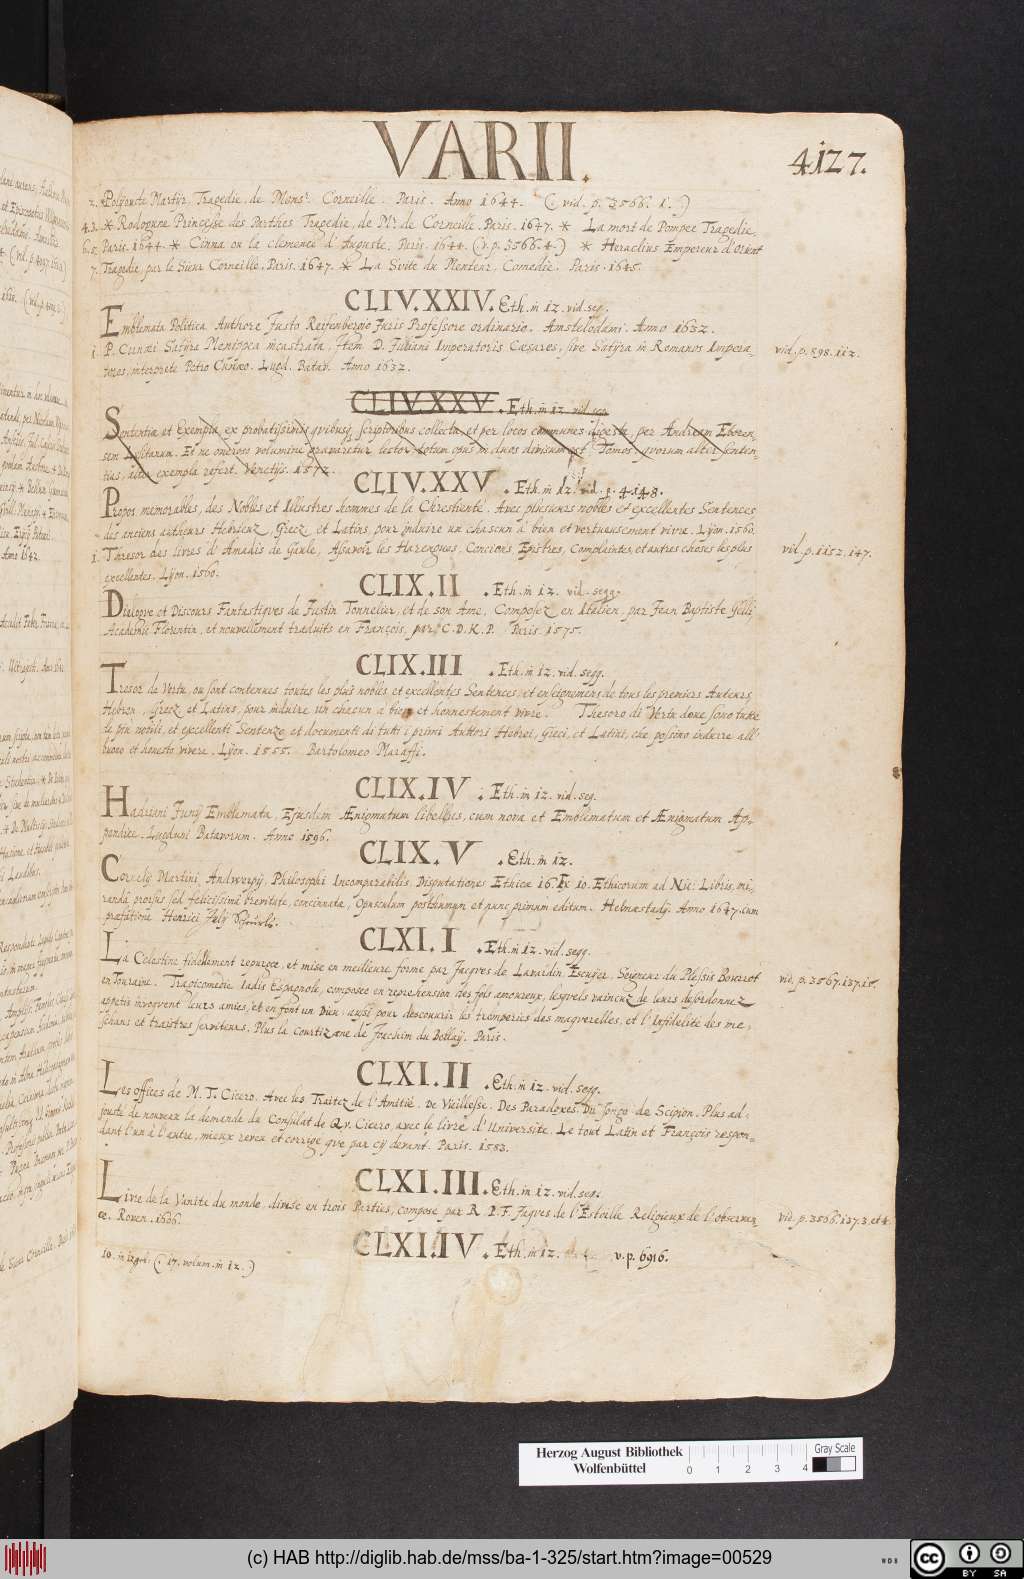 VARII.
4127.
2. Polyeucte Martyr, Tragedie, de Monsr. Corneille. Paris. Anno 1644. (vid. p. 3566. 1.)
4.3. * Rodogune Princesse des Parthes Tragedie, de Mr. de Corneille. Paris. 1647. * La mort de Pompee Tragedie,
6.5. Paris. 1644. * Cinna ou la clemence d'Auguste. Paris. 1644. (v. p. 3566. 4.) * Heraclius Empereur d'Orient
7. Tragedie, par le Sieur Corneille. Paris. 1647. * La Suite du Menteur, Comedie. Paris. 1645.
CLIV.XXIV. Eth. in 12. vid. seg.
Emblemata Politica Authore Justo Reifenbergio Juris Professore ordinario. Amstelodami. Anno 1632.
1. P. Cunaei Satyra Menippea incastrata, Item D. Juliani Imperatoris Caesares, sive Satyra in Romanos Impera-
tores, interprete Petro Cunaeo. Lugd. Batav. Anno 1632.
vid. p. 898. 112.
CLIV.XXV. Eth. in 12. vid. seg.
Sententiae et Exempla ex probatissimis quibusq. scriptoribus collecta, et per locos communes digesta, per Andream Eboren-
sem Lusitanum. Et ne oneroso volumine gravaretur lector totum opus in duos divisum est Tomos, quorum alter senten-
tias, alter exempla refert. Venetijs. 1572.
CLIV.XXV. Eth. in 12. vid. p. 4148.
Propos memorables, des Nobles et Illustres hommes de la Chrestienté. Avec plusieurs nobles et excellentes Sentences
des anciens autheurs Hebrieuz, Grecz et Latins, pour induire un chascun à bien et vertueusement vivre. Lyon. 1560.
1. Thresor des livres d'Amadis de Gaule, Assavoir les Harengues, Concions, Epistres, Complaintes, et autres choses les plus
excellentes. Lyon. 1560.
vid. p. 1152. 147.
CLIX.II. Eth. in 12. vid. segg.
Dialogue et Discours Fantastiques de Justin Tonnelier, et de son Ame, Composez en Italien, par Jean Baptiste Gelli
Academic Florentin, et nouvellement traduits en François, par C. D. K. P. Paris. 1575.
CLIX.III. Eth. in 12. vid. segg.
Tresor de Vertu, ou sont contenues toutes les plus nobles et excellentes Sentences, et enseignemens de tous les premiers Auteurs
Hebreux, Grecz et Latins, pour induire un chacun à bien et honnestement vivre. Thesoro di Vertu dove sono tutte
le piu nobili, et excellenti Sentenze et documenti di tutti i primi Authori Hebrei, Greci, et Latini, che possino indurre all'
buono et honesto vivere. Lyon. 1555. Bartolomeo Maraffi.
CLIX.IV. Eth. in 12. vid. seg.
Hadriani Junij Emblemata, Ejusdem Ænigmatum libellus, cum nova et Emblematum et Ænigmatum Ap-
pendice. Lugduni Batavorum. Anno 1596.
CLIX.V. Eth. in 12.
Cornelij Martini, Andwerpij, Philosophi Incomparabilis Disputationes Ethicae 16. Ex 10. Ethicorum ad Nic: Libris, mi-
randa prorsus sed felicissima brevitate, concinnata, Opusculum posthumum et nunc primum editum. Helmaestadij. Anno 1647. cum
praefatione Henrici Julij
CLXI.I. Eth. in 12. vid. segg.
La Celestine fidellement repurgee, et mise en meilleure forme par Jacques de Lavardin Escuyer, Seigneur du Plessis Bourrot
en Touraine. Tragicomedie Iadis Espagnole, composee en reprehension des fols amoureux, lesquels vaincuz de leurs desordonnez
appetis invoquent leurs amies, et en font un Dieu: aussi pour descouvrir les tromperies des maquerelles, et l'Infidelité des me-
schans et traistres serviteurs, Plus la Courtizane de Joachim du Bellay. Paris.
vid. p. 3567. 137. 15.
CLXI.II. Eth. in 12. vid. segg.
Les offices de M. T. Cicero. Avec les Traitez de l'Amitié. De Vieillesse. Des Paradoxes. Du Songe de Scipion. Plus ad-
jousté de nouveau la demande du Consulat de Q. v. Cicero avec le livre d'Université. Le tout Latin et François respon-
dant l'un à l'autre, mieux reveu et corrigé que par cij devant. Paris. 1583.
CLXI.III. Eth. in 12. vid. seg.
Livre de la Vanité du monde, divisé en trois Parties, composé par R. P. F. Jaques de l'Estoille Religieux de l'observan-
ce. Rouen. 1606.
vid. p. 3566. 137. 3. et 4.
CLXI.IV. Eth. in 12. v. p. 6916.
10. in 12gro: (17. volum. in 12.)
Herzog August Bibliothek
Wolfenbüttel
0 1 2 3 4
Gray Scale
(c) HAB http://diglib.hab.de/mss/ba-1-325/start.htm?image=00529
WDB
cc BY SA